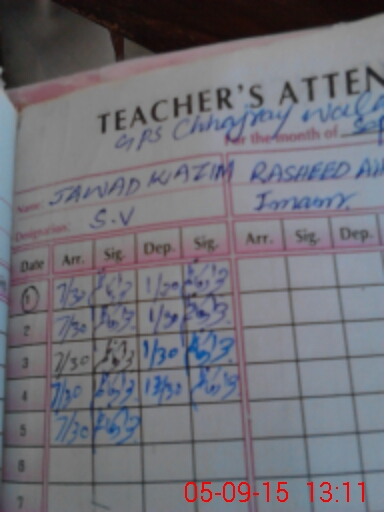 TEACHER'S ATTEN
GPS Chhajray Wala
For the month of Sep
Name: JAWAD KAZIM RASHEED AH
Designation: S.V Imam.
Date Arr. Sig. Dep. Sig. Arr. Sig. Dep.
1 7/30 1/30
2 7/30 1/30
3 7/30 1/30
4 7/30 12/30
5 7/30
6
7
05-09-15 13:11